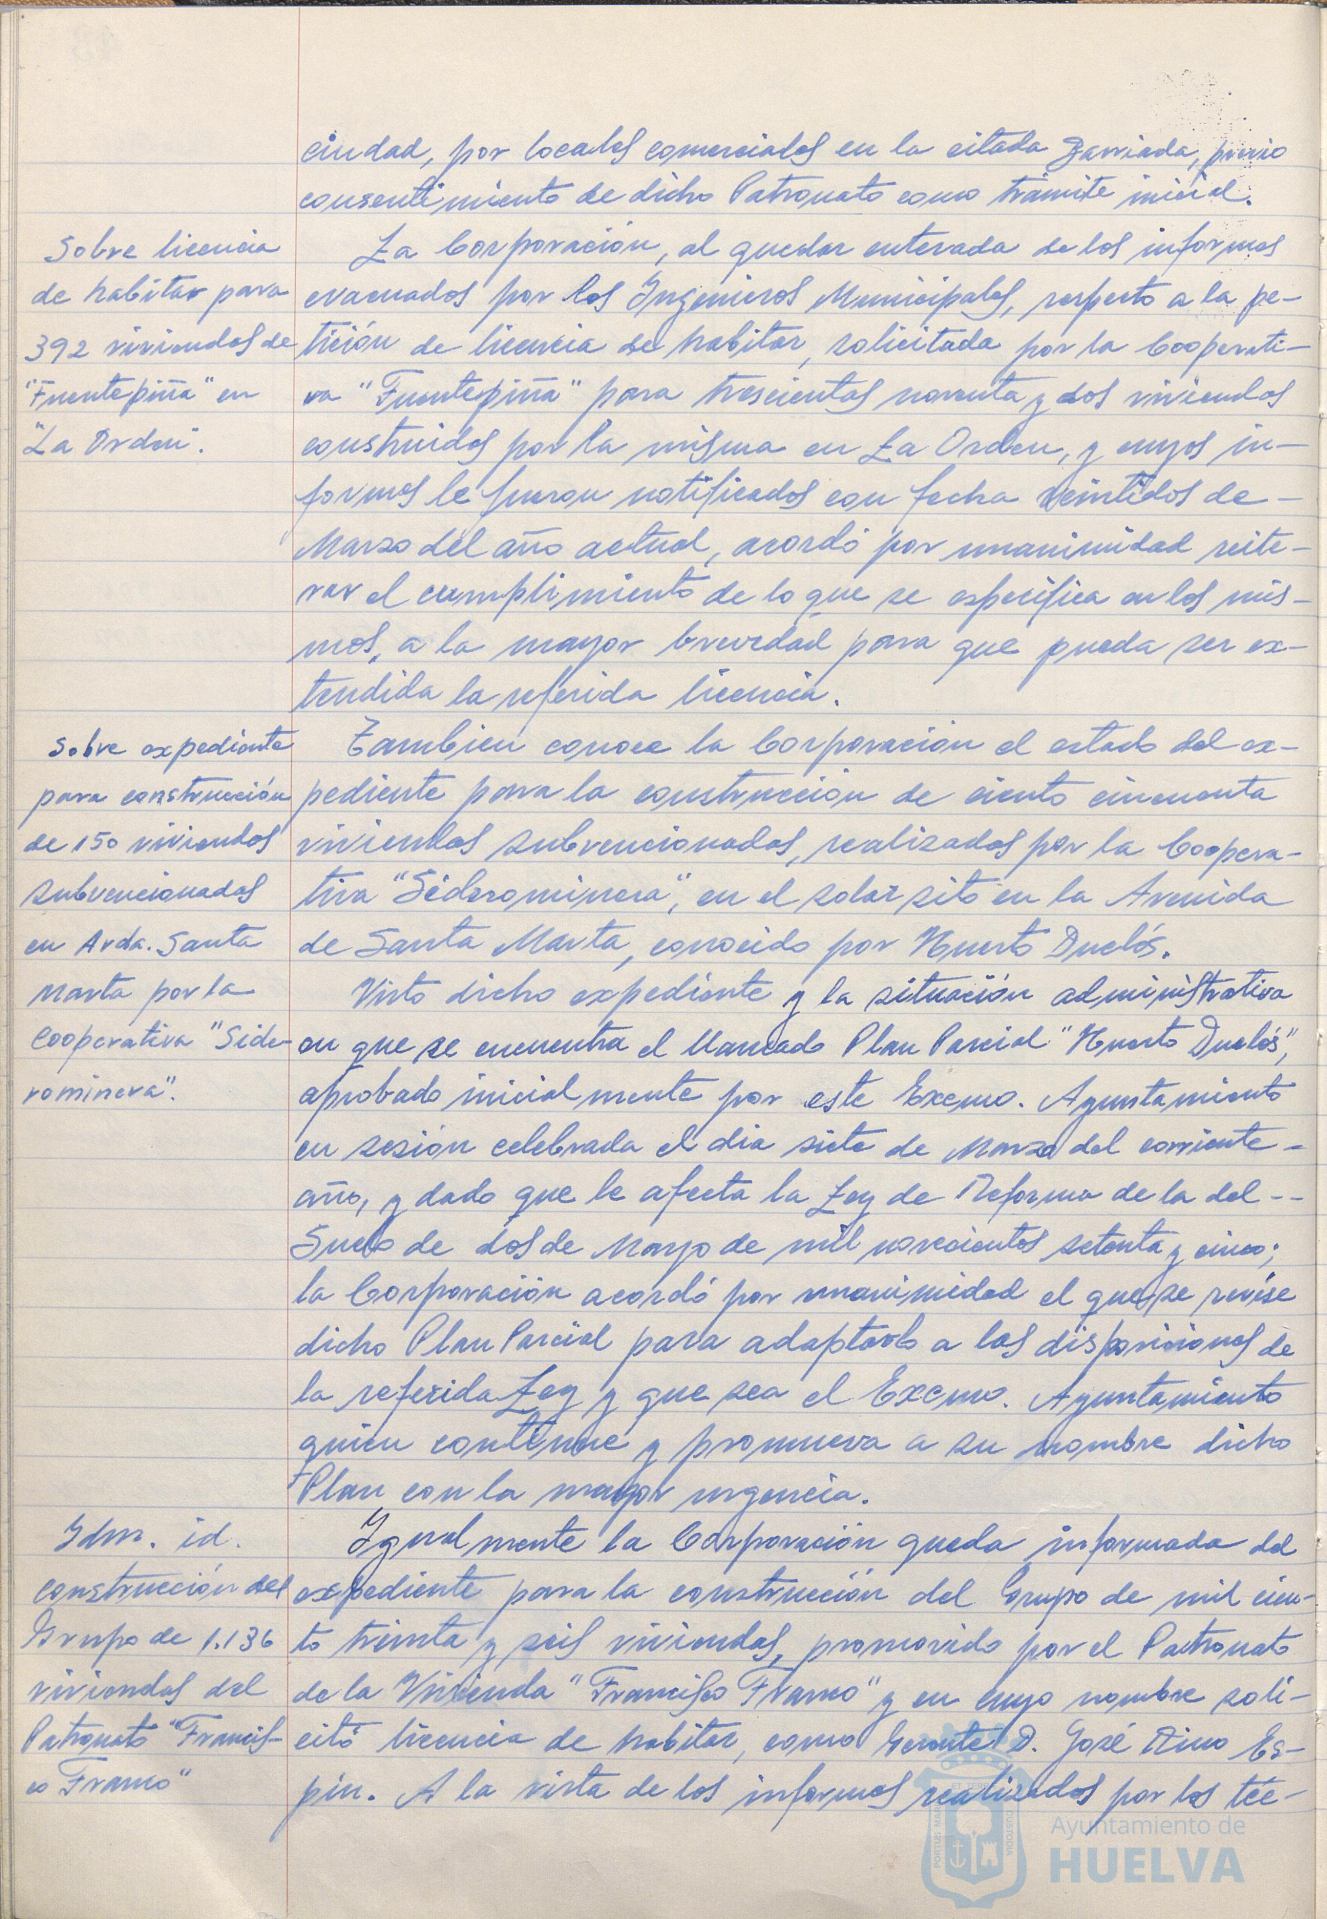 ciudad, por locales comerciales en la citada Barriada, previo
consentimiento de dicho Patronato como trámite inicial.
Sobre licencia
de habitar para
392 viviendas de
"Fuentepiña" en
"La Orden".
La Corporación, al quedar enterada de los informes
evacuados por los Ingenieros Municipales, respecto a la pe-
tición de licencia de habitar, solicitada por la Cooperati-
va "Fuentepiña" para trescientas noventa y dos viviendas
construidas por la misma en La Orden, y cuyos in-
formes le fueron notificados con fecha veintidos de -
Marzo del año actual, acordó por unanimidad reite-
rar el cumplimiento de lo que se especifica en los mis-
mos, a la mayor brevedad para que pueda ser ex-
tendida la referida licencia.
Sobre expediente
para construcción
de 150 viviendas
subvencionadas
en Avda. Santa
Marta por la
Cooperativa "Side-
rominera".
Tambien conoce la Corporación el estado del ex-
pediente para la construcción de ciento cincuenta
viviendas subvencionadas, realizadas por la Coopera-
tiva "Siderominera", en el solar sito en la Avenida
de Santa Marta, conocido por Huerto Duclós.
Visto dicho expediente y la situación administrativa
en que se encuentra el llamado Plan Parcial "Huerto Duclós",
aprobado inicialmente por este Excmo. Ayuntamiento
en sesión celebrada el dia siete de Marzo del corriente -
año, y dado que le afecta la Ley de Reforma de la del --
Suelo de dos de Mayo de mil novecientos setenta y cinco;
la Corporación acordó por unanimidad el que se revise
dicho Plan Parcial para adaptarlo a las disposiciones de
la referida Ley y que sea el Excmo. Ayuntamiento
quien continue y promueva a su nombre dicho
Plan con la mayor urgencia.
Idm. id.
construcción del
Grupo de 1.136
viviendas del
Patronato "Francis-
co Franco"
Igualmente la Corporación queda informada del
expediente para la construcción del Grupo de mil cien-
to treinta y seis viviendas, promovido por el Patronato
de la Vivienda "Francisco Franco" y en cuyo nombre soli-
citó licencia de habitar, como Gerente D. José Pino Es-
pin. A la vista de los informes realizados por los téc-
Ayuntamiento de
HUELVA